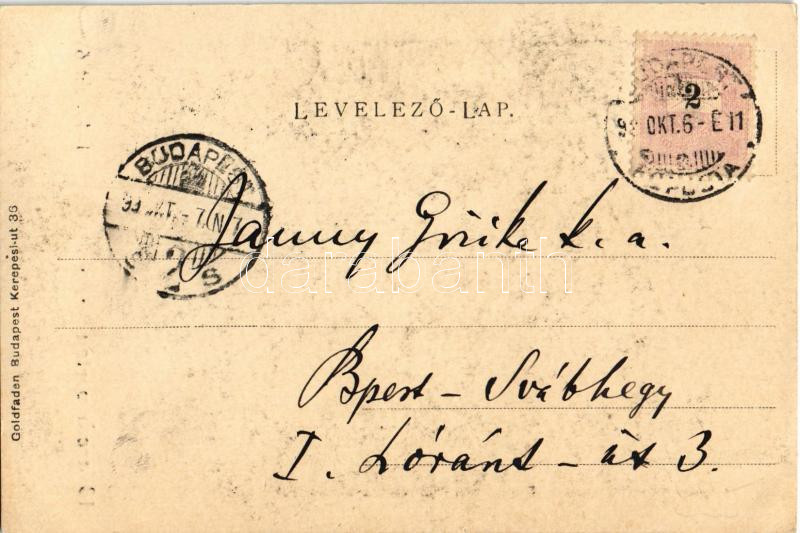 LEVELEZŐ-LAP.
2
BUDAPEST
99 OKT. 6 - É 11
BUDAPEST
99 OKT. 7. N 7
Janny Gizike k. a.
darabanth
Bpest - Svábhegy
I. Lóránt - út 3.
Goldfaden Budapest Kerepesi-ut 36